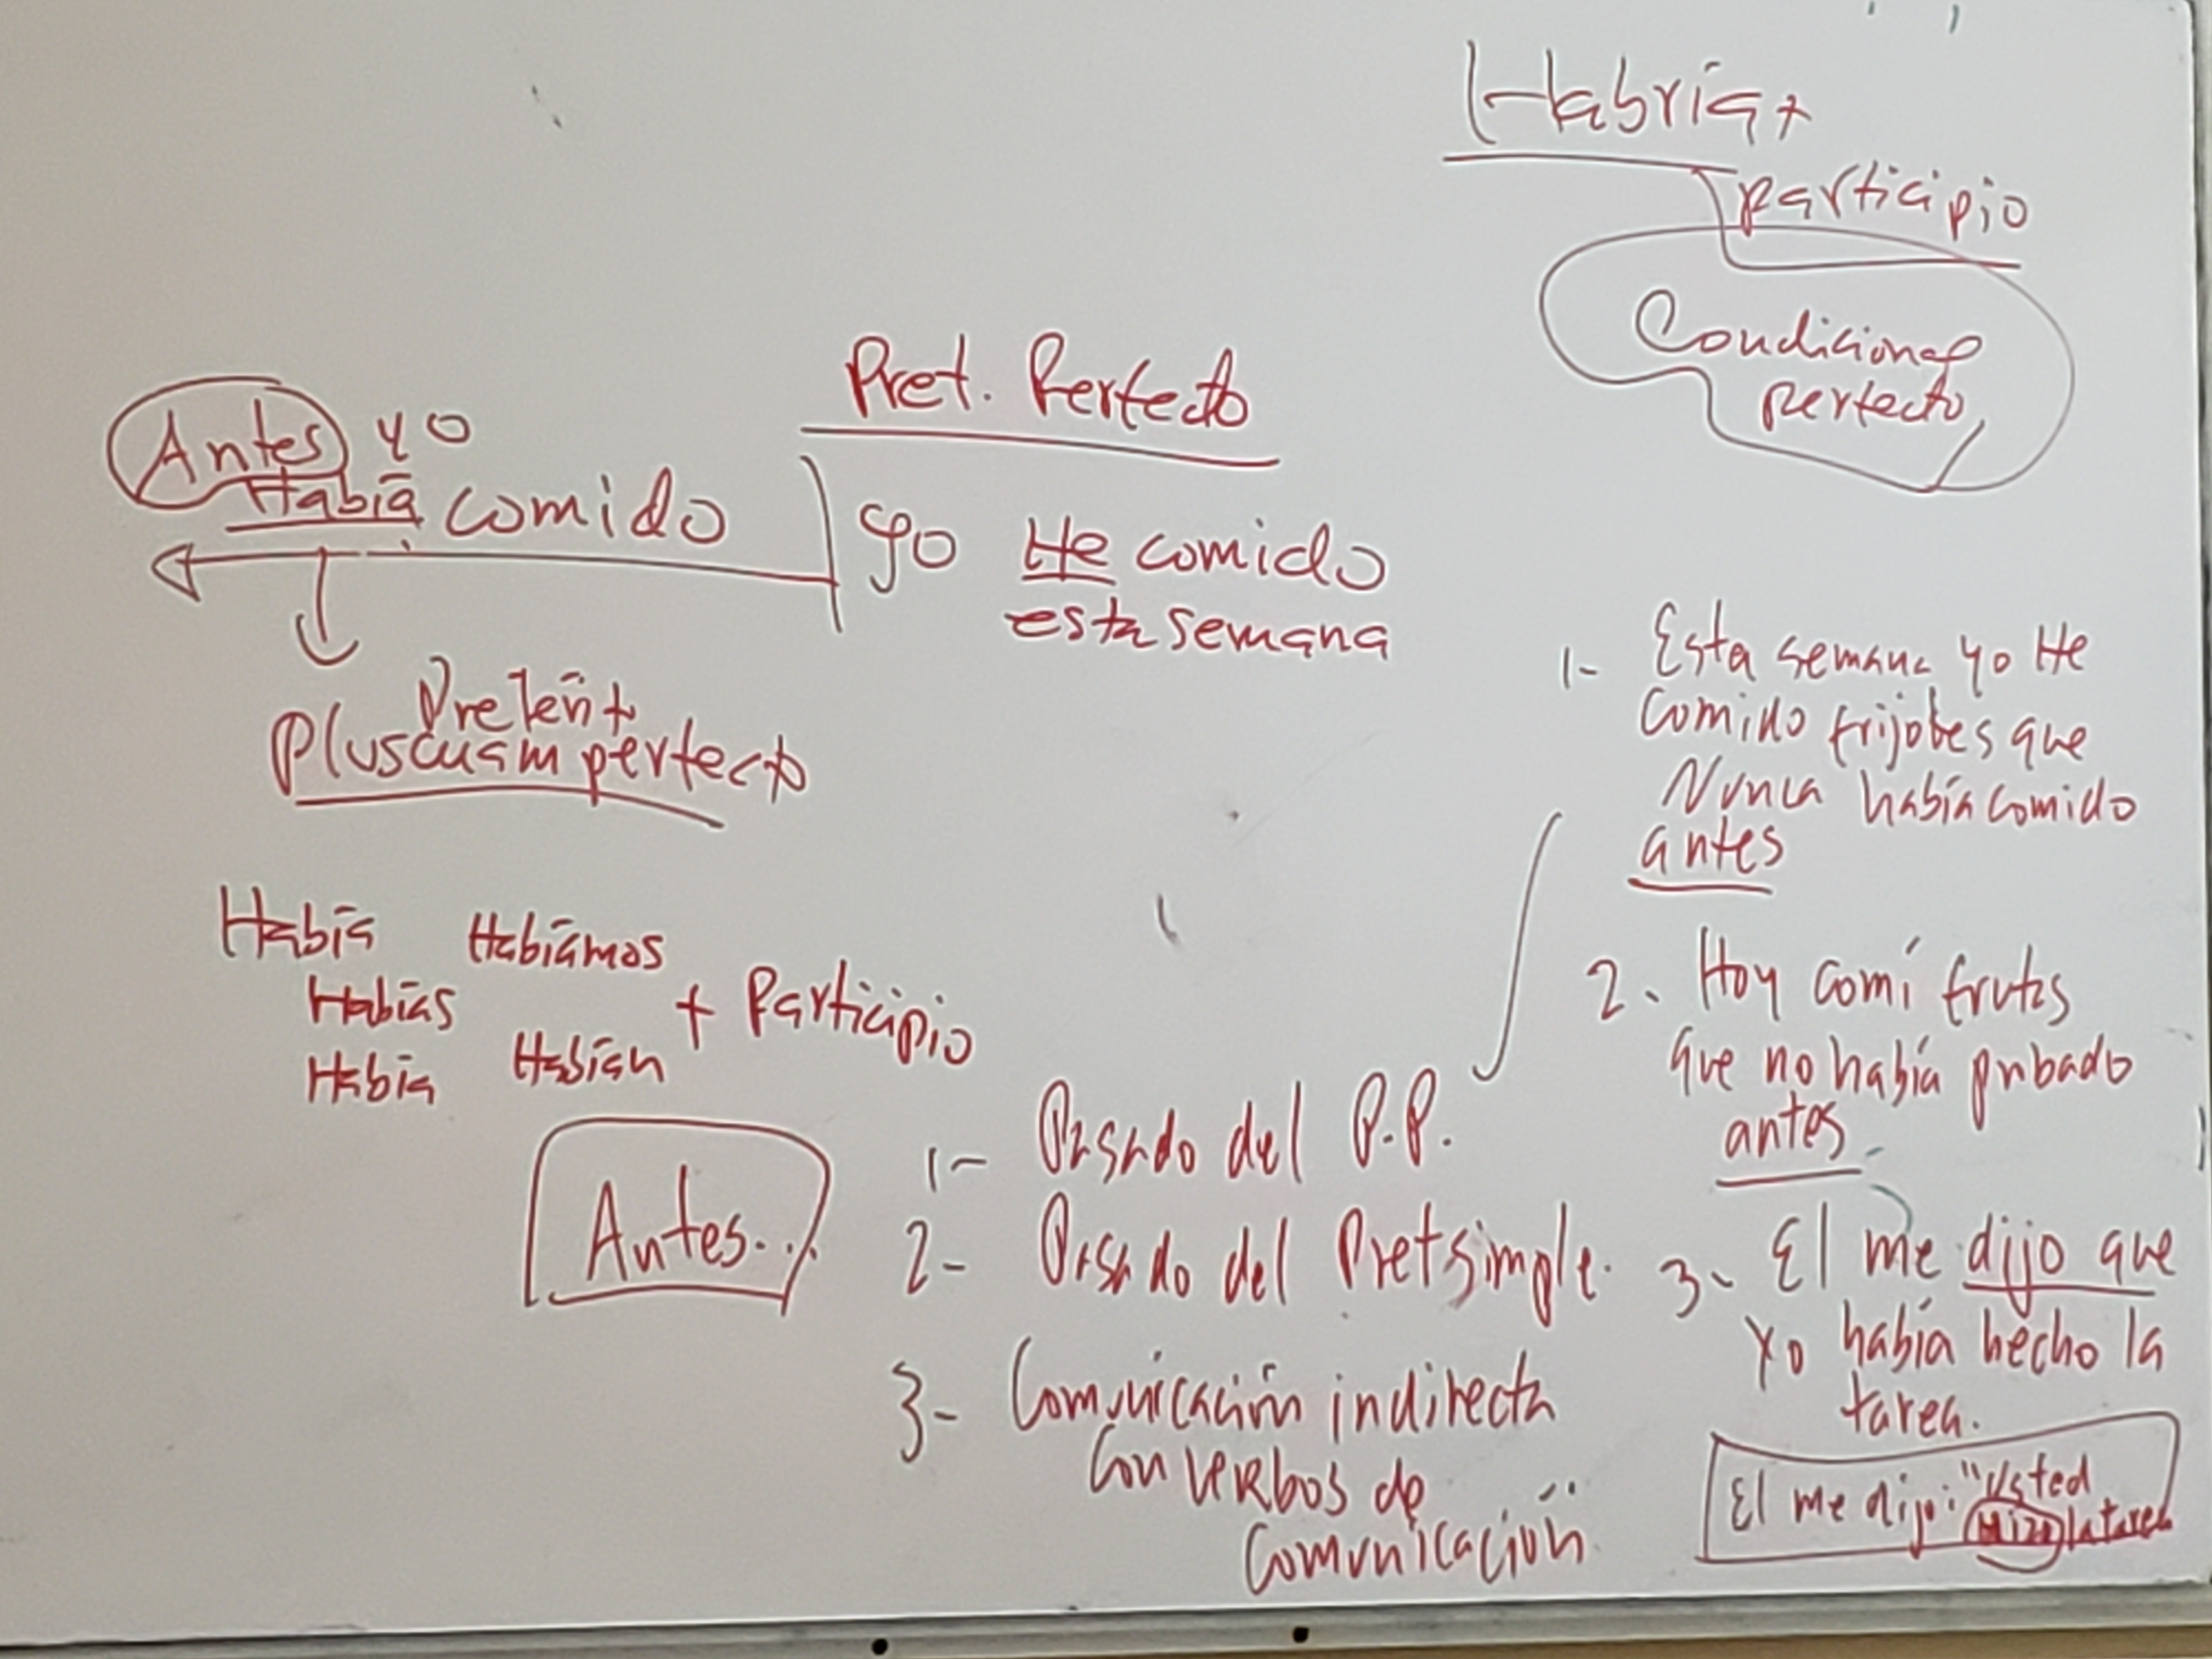 Habría +
participio
Condicional
perfecto
Pret. Perfecto
Antes yo
Había comido
yo He comido
esta semana
Pretérit
Pluscuamperfecto
Había Habíamos
Habías
Había Habían
+ Participio
Antes...
1- Pasado del P.P.
2- Pasado del Pret simple.
3- Comunicación indirecta
con verbos de
comunicación
1- Esta semana yo He
comido frijoles que
Nunca había comido
antes
2. Hoy comí frutas
que no había probado
antes.
3- El me dijo que
yo había hecho la
tarea.
El me dijo: "Usted
Hizo la tarea